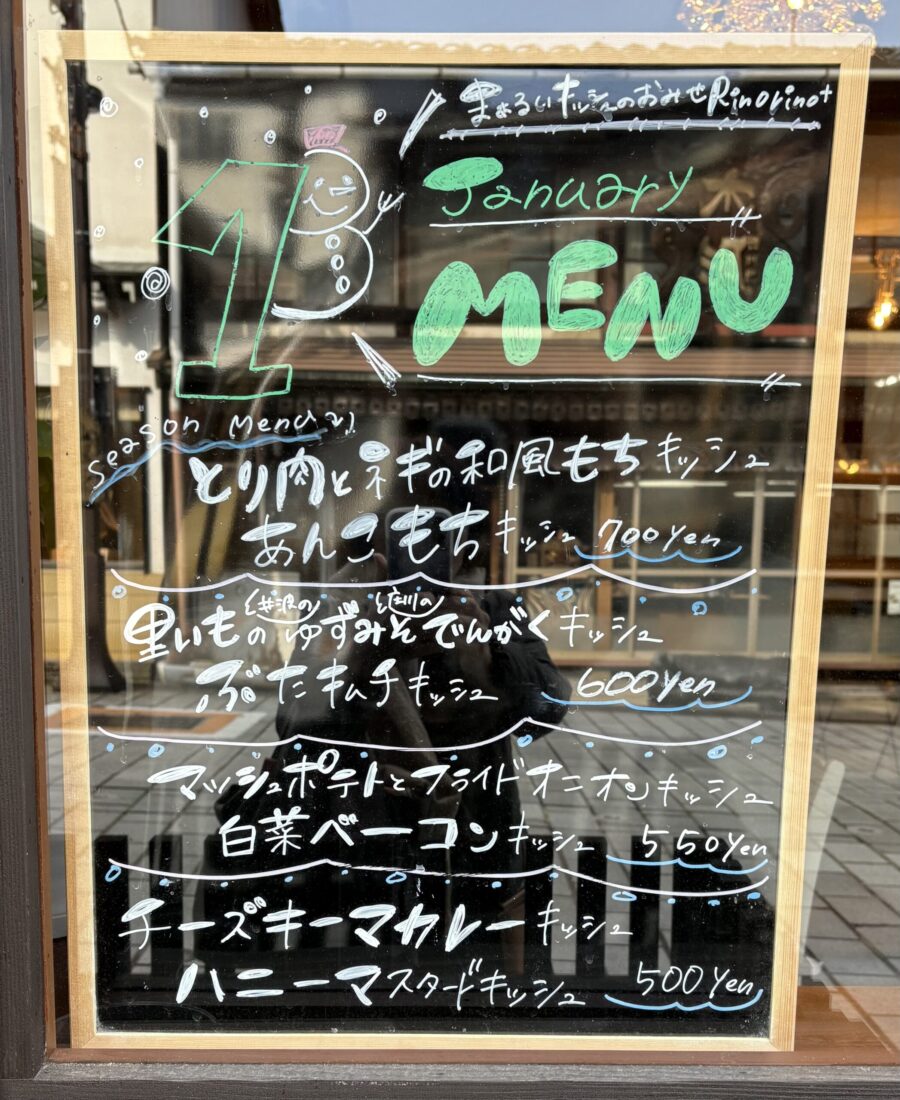 まぁるいキッシュのおみせRinorino+
1
January
MENU
Season Menu
とり肉とネギの和風もちキッシュ
あんこもちキッシュ 700yen
里いもの井波のゆずみそ庄川のでんがくキッシュ
ぶたキムチキッシュ 600yen
マッシュポテトとフライドオニオンキッシュ
白菜ベーコンキッシュ 550yen
チーズキーマカレーキッシュ
ハニーマスタードキッシュ 500yen